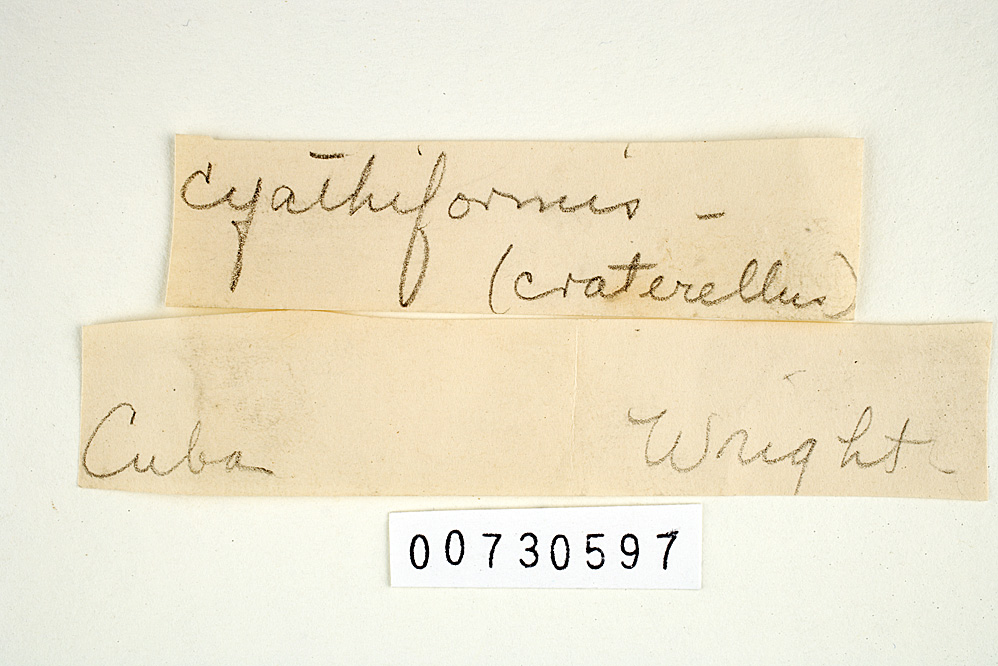 Cyathiformis -
(craterellus)
Cuba Wright -
00730597